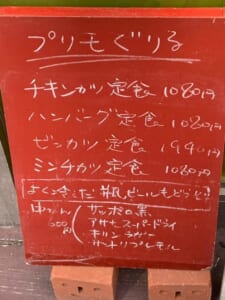 プリモぐりる
チキンカツ定食 1080円
ハンバーグ定食 1080円
ビンカツ定食 1940円
ミンチカツ定食 1080円
よく冷えた瓶ビールもどうぞ!
中びん サッポロ黒
600円 アサヒスーパードライ
キリンラガー
サントリープレモル